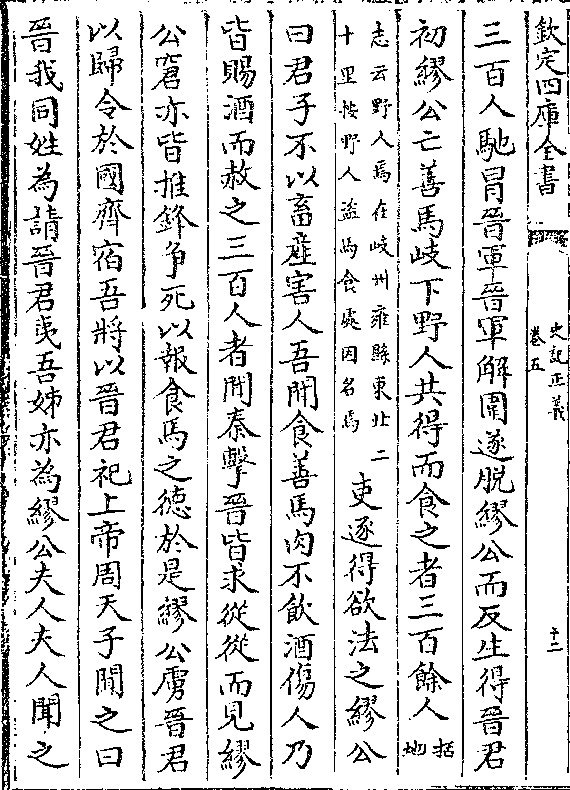 欽定四庫全書
史記正義
卷五
十二
三百人馳冒晉軍晉軍解圍遂脫繆公而反生得晉君
初繆公亡善馬岐下野人共得而食之者三百餘人括地
志云野人焉在岐州雍縣東北二
十里按野人盜馬食處因名焉
吏逐得欲法之繆公
曰君子不以畜產害人吾聞食善馬肉不飲酒傷人乃
皆賜酒而赦之三百人者聞秦擊晉皆求從從而見繆
公窘亦皆推鋒争死以報食馬之德於是繆公虜晉君
以歸令於國齊宿吾將以晉君祀上帝周天子聞之曰
晉我同姓為請晉君夷吾姊亦為繆公夫人夫人聞之